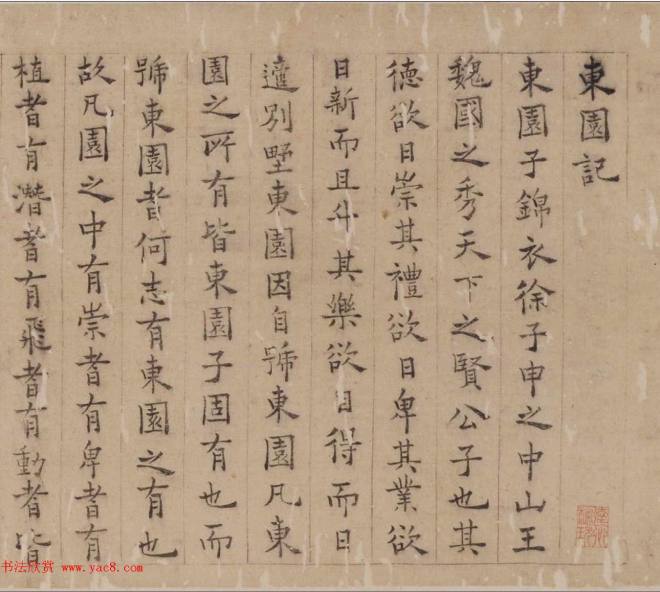 東園記
東園子錦衣徐子申之中山王
魏國之秀天下之賢公子也其
徳欲日崇其禮欲日卑其業欲
日新而且升其樂欲日得而日
邅別墅東園因自號東園凡東
園之所有皆東園子固有也而
號東園者何志有東園之有也
故凡園之中有崇者有卑者有
植者有潛者有飛者有動者皆
书法欣赏 www.yac8.com